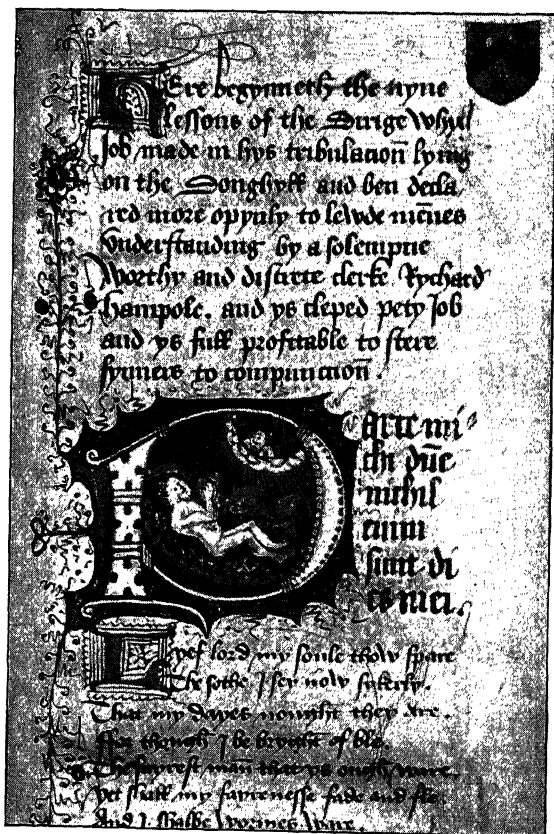 Here begynneth the nyne
lessons of the Dirige Whych
Job made in hys tribulacioñ lying
on the Donghyll and ben decla
red more opynly to lewde meñes
vnderstanding by a solempne
Worthy and discrete clerke Rychard
Hampole. and ys cleped pety Job
and ys full profitable to stere
synners to compunccioñ.
Parce mi
chi dñe
nichil
enim
sunt di
es mei.
Lyef lord my soule thow spare
The sothe I sey now sykerly.
That my dayes nought they are.
ffor though I be bryght of ble.
The fayrest mañ that ys ough ware.
yet shall my fayrenesse fade and fle
And I shalbe wormes ware.